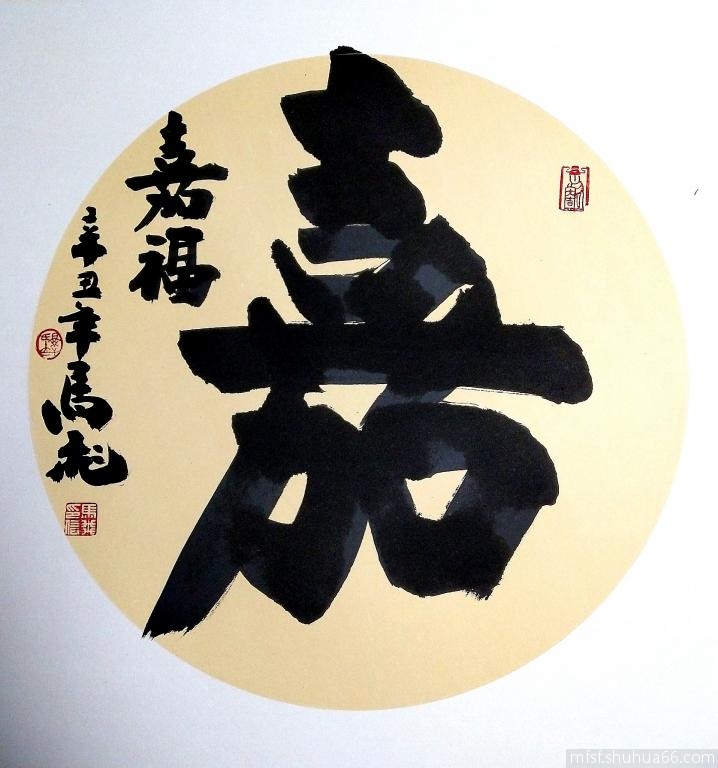 嘉
嘉福
辛丑年馬
mfsf.shuhua66.com